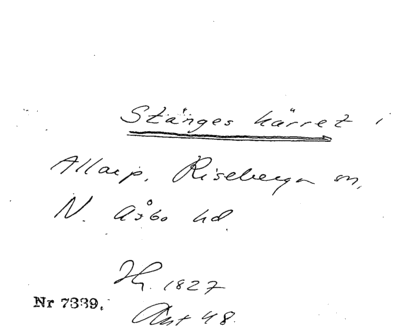 Stänges kärret i
Allarp, Riseberga sn,
N. Åsbo hd.
Hr. 1827
Nr 7339.
Akt 48.